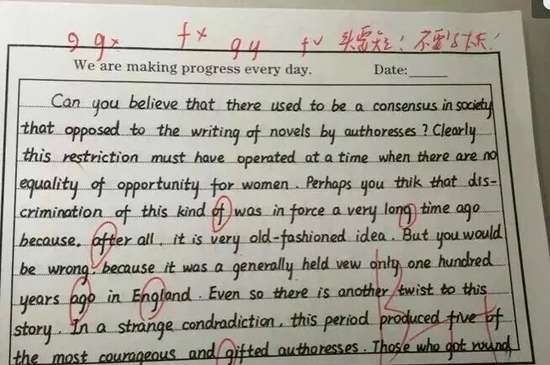 9 g× f× g y f✓ 头要短！不要太长！
We are making progress every day. Date:
Can you believe that there used to be a consensus in society
that opposed to the writing of novels by authoresses ? Clearly
this restriction must have operated at a time when there are no
equality of opportunity for women . Perhaps you thik that dis-
crimination of this kind of was in force a very long time ago
because , after all , it is very old-fashioned idea . But you would
be wrong because it was a generally held vew only one hundred
years ago in England . Even so there is another twist to this
story . In a strange condradiction , this period produced five of
the most courageous and gifted authoresses . Those who got round